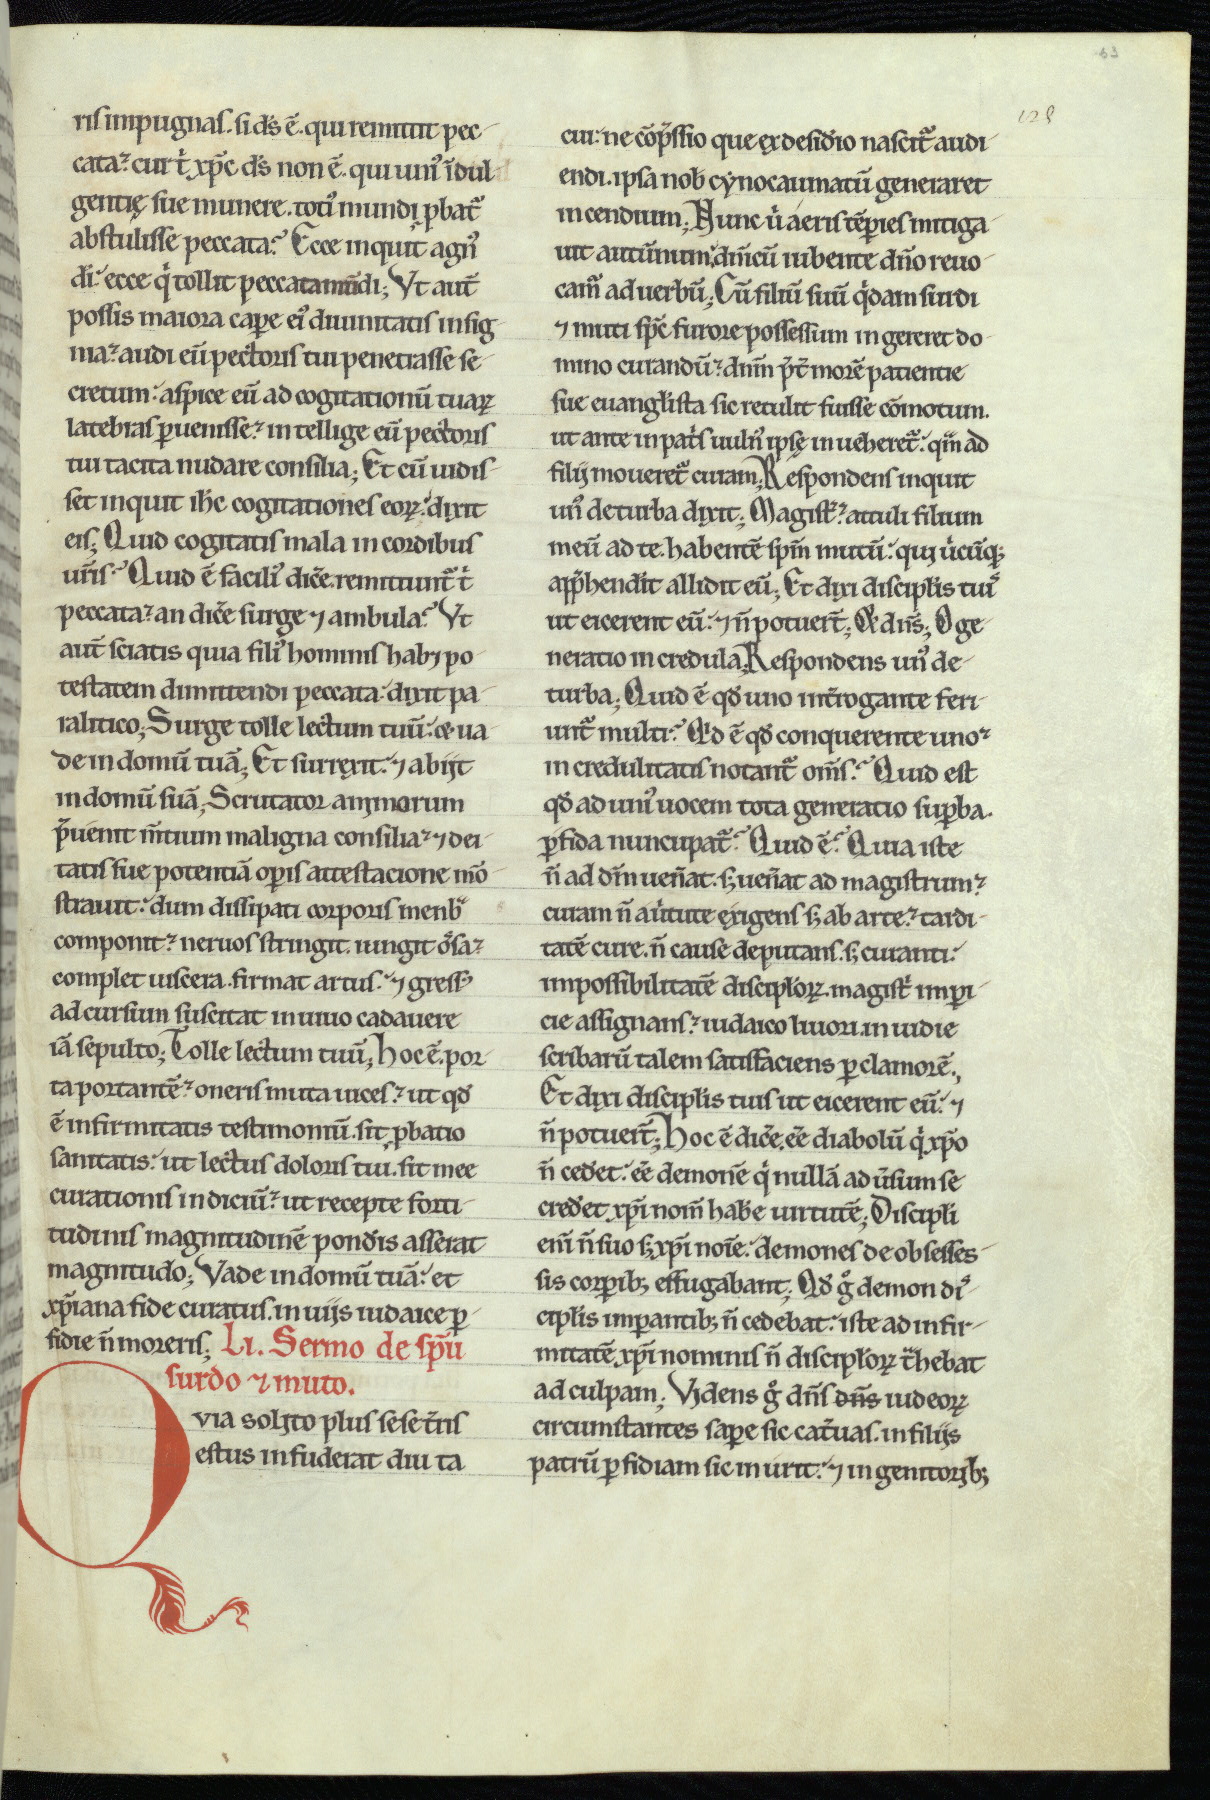 63
128
ris impugnas. si ds̄ ē. qui remittit pec-
cata? cur t̄ xp̄c ds̄ non ē. qui uni' īdul
gentię sue munere. toti' mundi ꝓbat̄
abstulisse peccata? Ecce inquit agn'
dī: ecce q tollit peccata mūdi; Vt aut̄
possis maiora cape ei' diuinitatis insig
nia? audi eū pectoris tui penetrasse se-
cretum: aspice eū ad cogitationū tuaꝝ
latebras ꝑuenisse? intellige eū pectoris
tui tacita nudare consilia; Et cū uidis-
set inquit ih̄c cogitationes eoꝝ: dixit
eis; Quid cogitatis mala in cordibus
ur̄is? Quid ē facili' dic̄e. remittunt̄ t̄
peccata? an dic̄e surge ⁊ ambula? Vt
aut̄ sciatis quia fili' hominis habꝫ po-
testatem dimittendi peccata: dixit pa-
ralitico; Surge tolle lectum tuū: & ua-
de in domū tuā; Et surrexit. ⁊ abijt
in domū suā; Scrutator animorum
p̄uenit m̄tium maligna consilia? ⁊ dei-
tatis sue potentiā oꝑis attestacione mō-
strauit: dum dissipati corporis menb'
componit? neruos stringit. iungit ossa?
complet uiscera. firmat artus. ⁊ gress'
ad cursum suscitat in uiuo cadauere
iā sepulto; Tolle lectum tuū; Hoc ē. por-
ta portantē? oneris muta uices? ut qd̄
ē infirmitatis testimoniū. sit ꝓbatio
sanitatis: ut lectus doloris tui. sit mee
curationis indiciū? ut recepte forti-
tudinis magnitudinē pond̄is asserat
magnitudo; Vade in domū tuā: et
xp̄iana fide curatus. in uijs iudaice ꝑ-
fidie n̄ moreris; LI. Sermo de sp̄u
surdo ⁊ muto.
Qvia solito plus sese t̄ris
estus infuderat diu ta
cui: ne cōp̄ssio que ex desid̄io nascit̄ audi-
endi. ipsa nob̄ cynocaumatū generaret
incendium; Nunc ū aeris tēꝑies mitiga-
uit autūnum, diu̅cū iubente dn̄o reuo-
cam̄ ad uerbū; Cū filiū suū q̇dam surdi
⁊ muti sp̄c furore possessum ingereret do-
mino curandū? dnm̄ p̄t̄ morē patientie
sue euangl̄ista sic retulit fuisse cōmotum.
ut ante in pat̄s uuln' ipse inueheret̄: qm̄ ad
filij moueret̄ curam; Respondens inquit
un' de turba dixit; Magist̄? attuli filium
meū ad te. habentē sp̄m mutū: qui ūcūqꝫ
app̄hendit allidit eū; Et dixi discipl̄is tui'
ut eicerent eū: ⁊ n̄ potuer̄t; Qd dn̄s; O ge-
neratio incredula; Respondens un' de
turba; Quid ē qd̄ uno int̄rogante feri-
unt̄ multi? Qd ē qd̄ conquerente uno?
incredulitatis notant̄ om̄s? Quid est
qd̄ ad uni' uocem tota generatio suꝑba.
ꝑfida nuncupat̄? Quid ē? Quia iste
n̄ ad dn̄m uen̄at. sꝫ uen̄at ad magistrum?
curam n̄ a ūtute exigens sꝫ ab arte? tardi-
tatē cure. n̄ cause deputans. sꝫ curanti:
impossibilitatē discipl̄oꝝ. magist̄ impi-
cie assignans? iudaico liuori. inuidie
scribarū talem satisfaciens ꝑ clamorē.;
Et dixi discipl̄is tuis ut eicerent eū: ⁊
n̄ potuer̄t; Hoc ē dic̄e. eē diabolū q xp̄o
n̄ cedet: eē demonē q nullā ad ūsum se
credet xp̄i nom̄ hab̄e uirtutē; Discipl̄i
eni̅ n̄ suo sꝫ xp̄i noīe. demones de obsesses-
sis corꝑibꝫ effugabant; Qd̄ g̊ demon di'-
cipl̄is imꝑantibꝫ n̄ cedebat: iste ad infir-
mitatē xp̄i nominis n̄ discipl̄oꝝ t̄hebat
ad culpam; Videns g̊ dn̄s dn̄s iudeoꝝ
circumstantes sape sic cat̄uas. in filijs
patrū ꝑfidiam sic inurit: ⁊ in genitoribꝫ